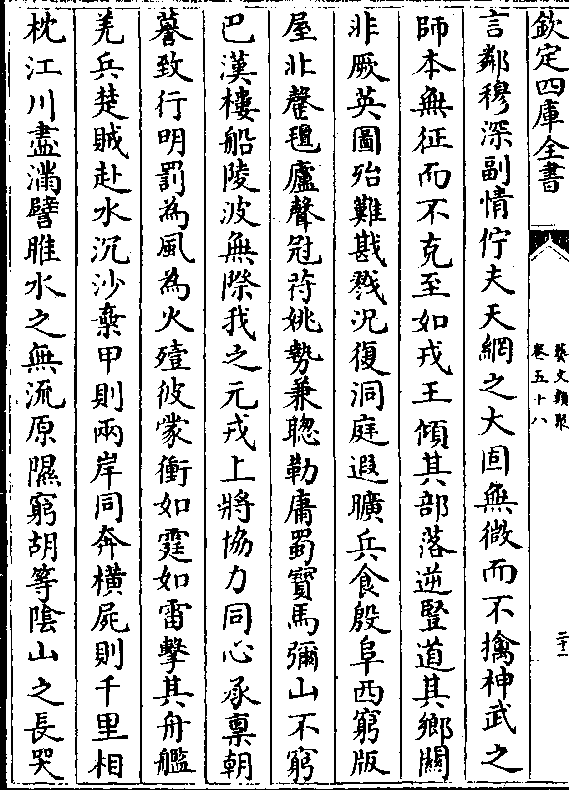 欽定四庫全書
藝文類聚
卷五十八
二十二
言鄰穆深副情佇夫天網之大固無微而不擒神武之
師本無征而不克至如戎王傾其部落逆豎道其鄉關
非厥英圖殆難戡戮況復洞庭遐曠兵食殷阜西窮版
屋北罄氊廬聲冠苻姚勢兼聰勒庸蜀寶馬彌山不窮
巴漢樓船陵波無際我之元戎上將協力同心承稟朝
謩致行明罰為風為火殪彼蒙衝如霆如雷擊其舟艦
羌兵楚賊赴水沉沙棄甲則兩岸同奔橫屍則千里相
枕江川盡滿譬睢水之無流原隰窮胡等陰山之長哭